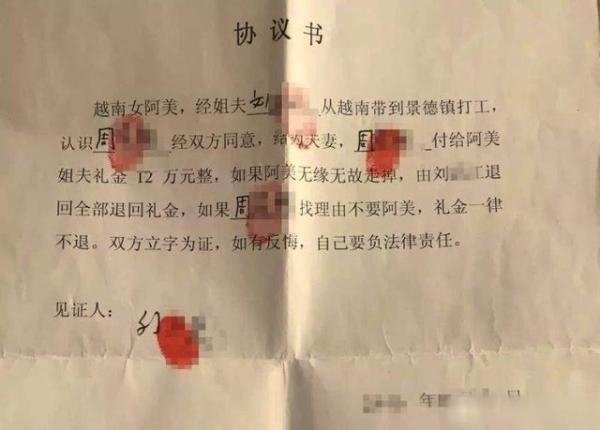 协议书
越南女阿美，经姐夫刘 从越南带到景德镇打工，
认识周 经双方同意，结为夫妻，周 付给阿美
姐夫礼金 12 万元整，如果阿美无缘无故走掉，由刘 江退
回全部退回礼金，如果周 找理由不要阿美，礼金一律
不退。双方立字为证，如有反悔，自己要负法律责任。
见证人：
年 日